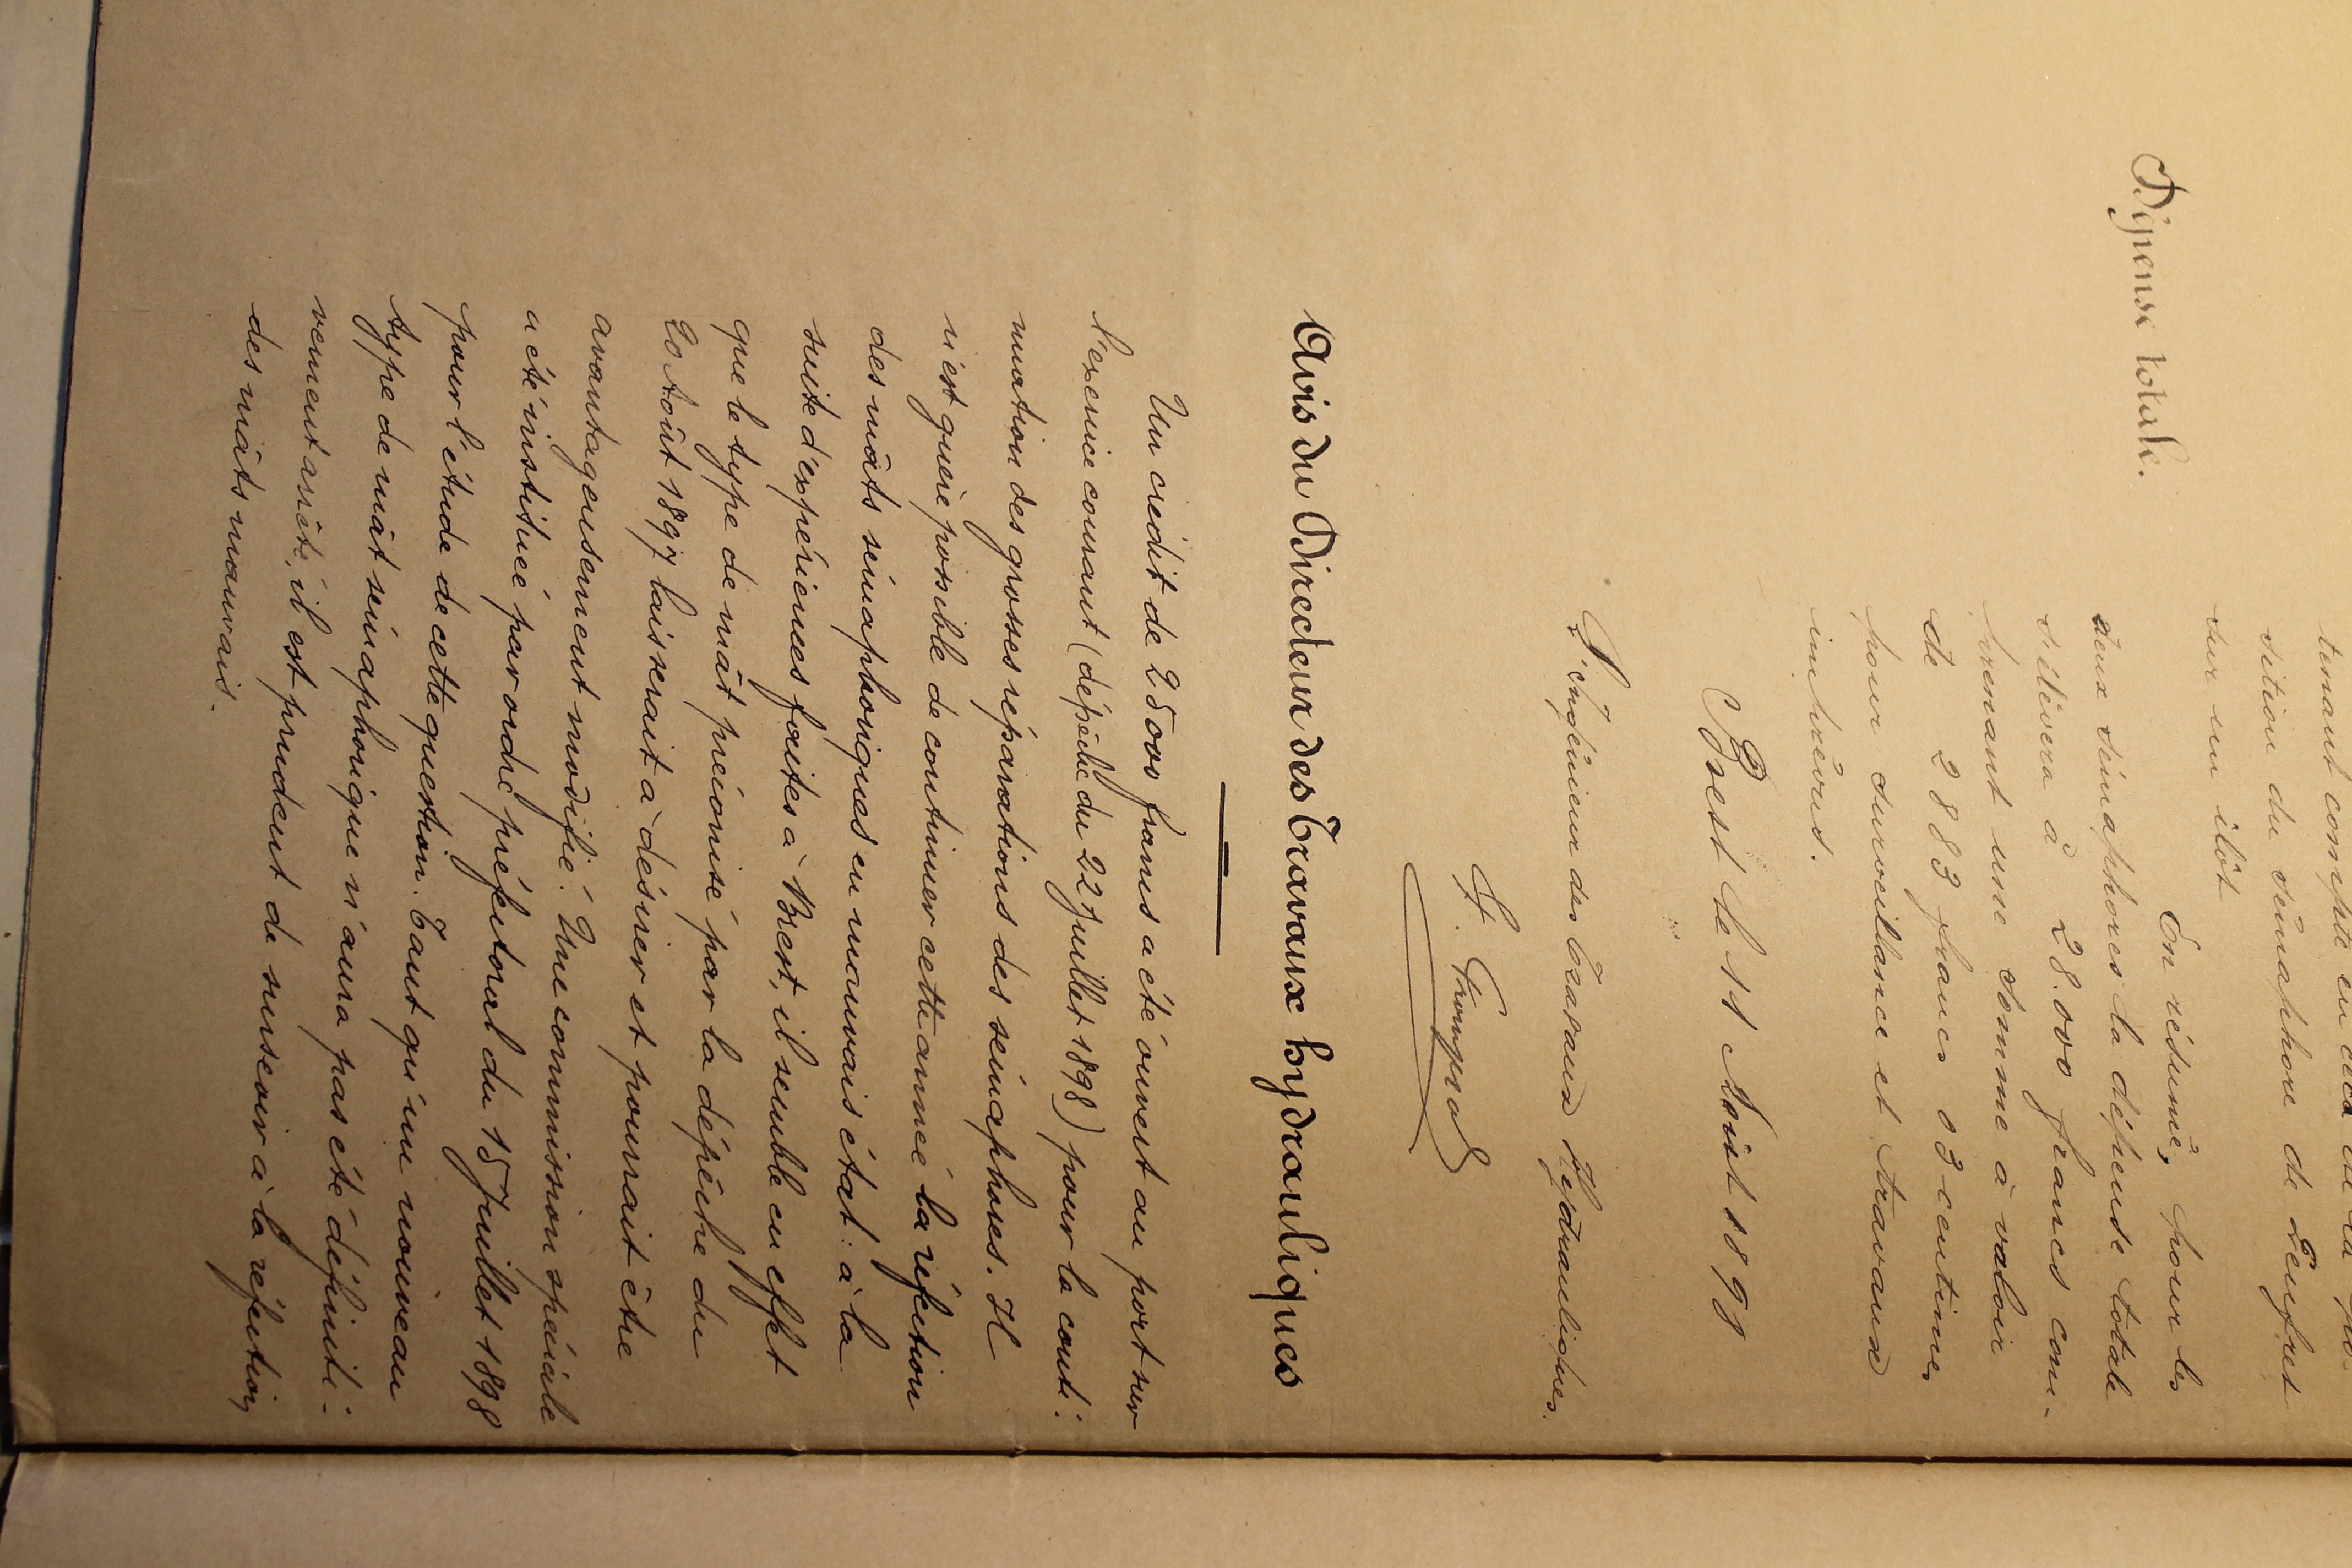 tenant compte en
sition du sémaphore de Creisfret
sur un ilôt
Dépense totale.
En résumé, pour les
deux sémaphores la dépense totale
s'élèvera à 28.000 francs com-
prenant une somme à valoir
de 2883 francs 03 centimes
pour surveillance et travaux
imprévus.
Brest le 11 Août 1898
L'Ingénieur des Travaux Hydrauliques.
Avis du Directeur des Travaux hydrauliques
Un crédit de 25000 francs a été ouvert au port sur
l'exercice courant (dépêche du 22 Juillet 1898) pour la conti-
nuation des grosses réparations des sémaphores. Il
n'est guère possible de continuer cette année la réfection
des mâts sémaphoriques en mauvais état : à la
suite d'expériences faites à Brest, il semble en effet
que le type de mât préconisé par la dépêche du
20 Août 1897 laisserait à désirer et pourrait être
avantageusement modifié. Une commission spéciale
a été instituée par ordre préfectoral du 15 Juillet 1898
pour l'étude de cette question. Tant qu'un nouveau
type de mât sémaphorique n'aura pas été définiti-
vement arrêté, il est prudent de surseoir à la réfection
des mâts mauvais.